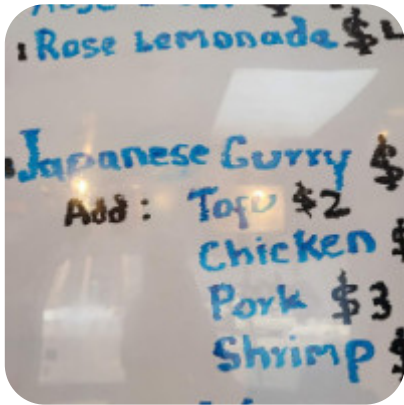 Rose Lemonade $
Japanese Curry $
Add: Tofu $2
Chicken $
Pork $3
Shrimp $